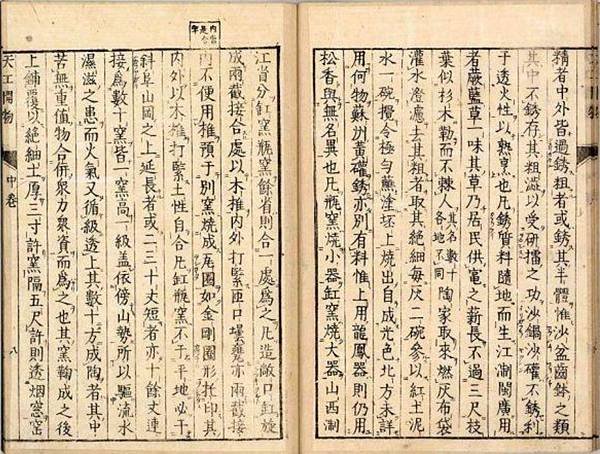 精者中外皆過銹粗者或銹其半體惟沙盆齒鉢之類
其中不銹存其粗澁以受研擂之功沙鍋沙礶不銹利
于透火性以熟烹也凡銹質料隨地而生江淛閩廣用
者蕨藍草一味其草乃居民供竈之薪長不過三尺枝
葉似杉木勒而不棘人其名數十各地不同陶家取來燃灰布袋
灌水澄濾去其粗者取其絕細每灰二碗參以紅土泥
水一碗攪令極勻蘸塗坯上燒出自成光色北方未詳
用何物蘇州黃礶銹亦別有料惟上用龍鳳器則仍用
松香與無名異也凡瓶窯燒小器缸窯燒大器山西淛
江省分缸窯瓶窯餘省則合一處爲之凡造敞口缸旋
成兩截接合處以木椎内外打緊匝口壜甕亦兩截接
内不便用椎預于別窯燒成瓦圈如金剛圈形托印其
内外以木椎打緊土性自合凡缸瓶窯不于平地必于
斜阜山岡之上延長者或二三十丈短者亦十餘丈連
接爲數十窯皆一窯高一級盖依傍山勢所以驅流水
濕滋之患而火氣又循級透上其數十方成陶者其中
苦無重值物合併衆力衆資而爲之也其窯鞠成之後
上鋪覆以絕細土厚三寸許窯隔五尺許則透烟窓窯
天工開物
中卷
八